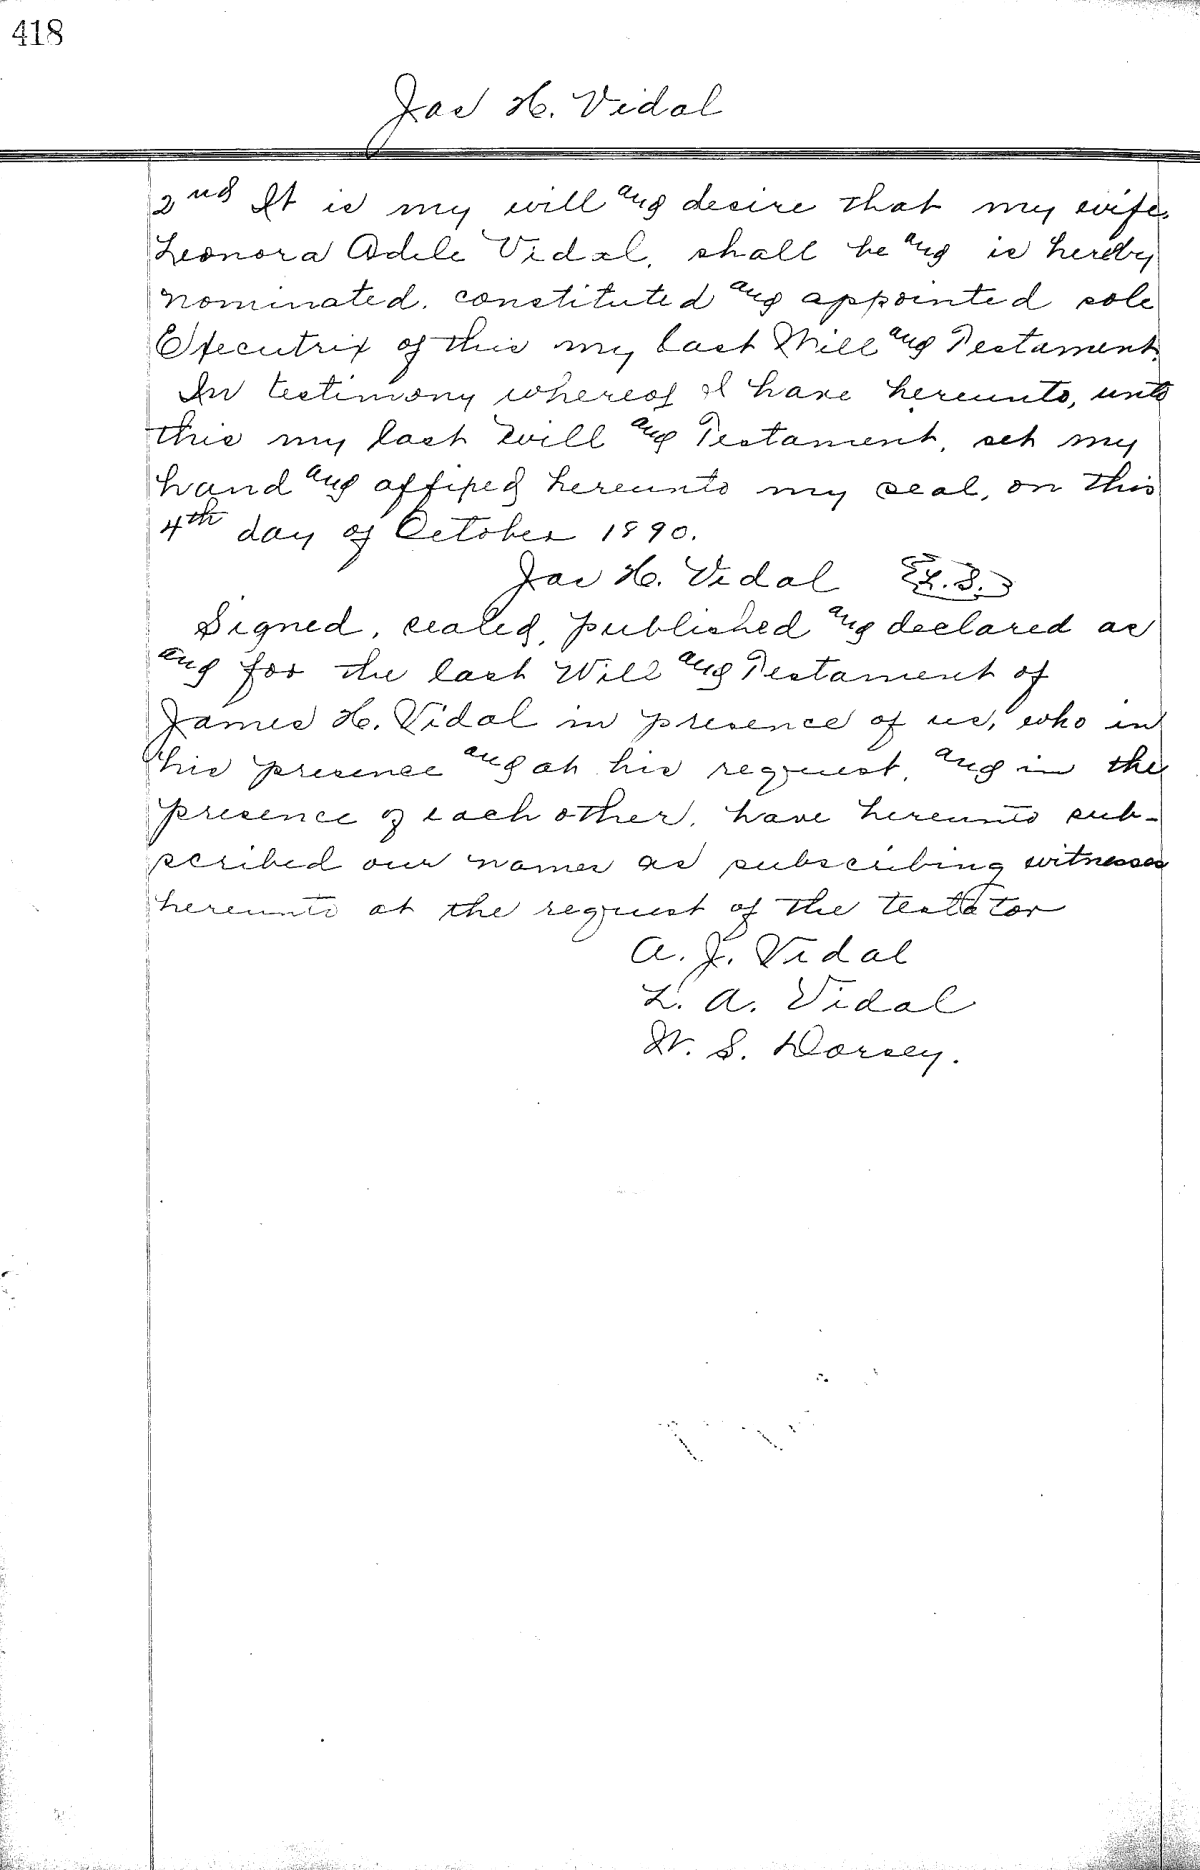 418
Jas H. Vidal
2nd It is my will and desire that my wife,
Leonora Adele Vidal, shall be and is hereby
nominated, constituted and appointed sole
Executrix of this my last Will and Testament.
In testimony whereof I have hereunto, unto
this my last Will and Testament, set my
hand and affixed hereunto my seal, on this
4th day of October 1890.
Jas H. Vidal {L. S.}
Signed, sealed, published and declared as
and for the last Will and Testament of
James H. Vidal in presence of us, who in
his presence and at his request, and in the
presence of each other, have hereunto sub-
scribed our names as subscribing witnesses
hereunto at the request of the testator
A. J. Vidal
L. A. Vidal
W. S. Dorsey.